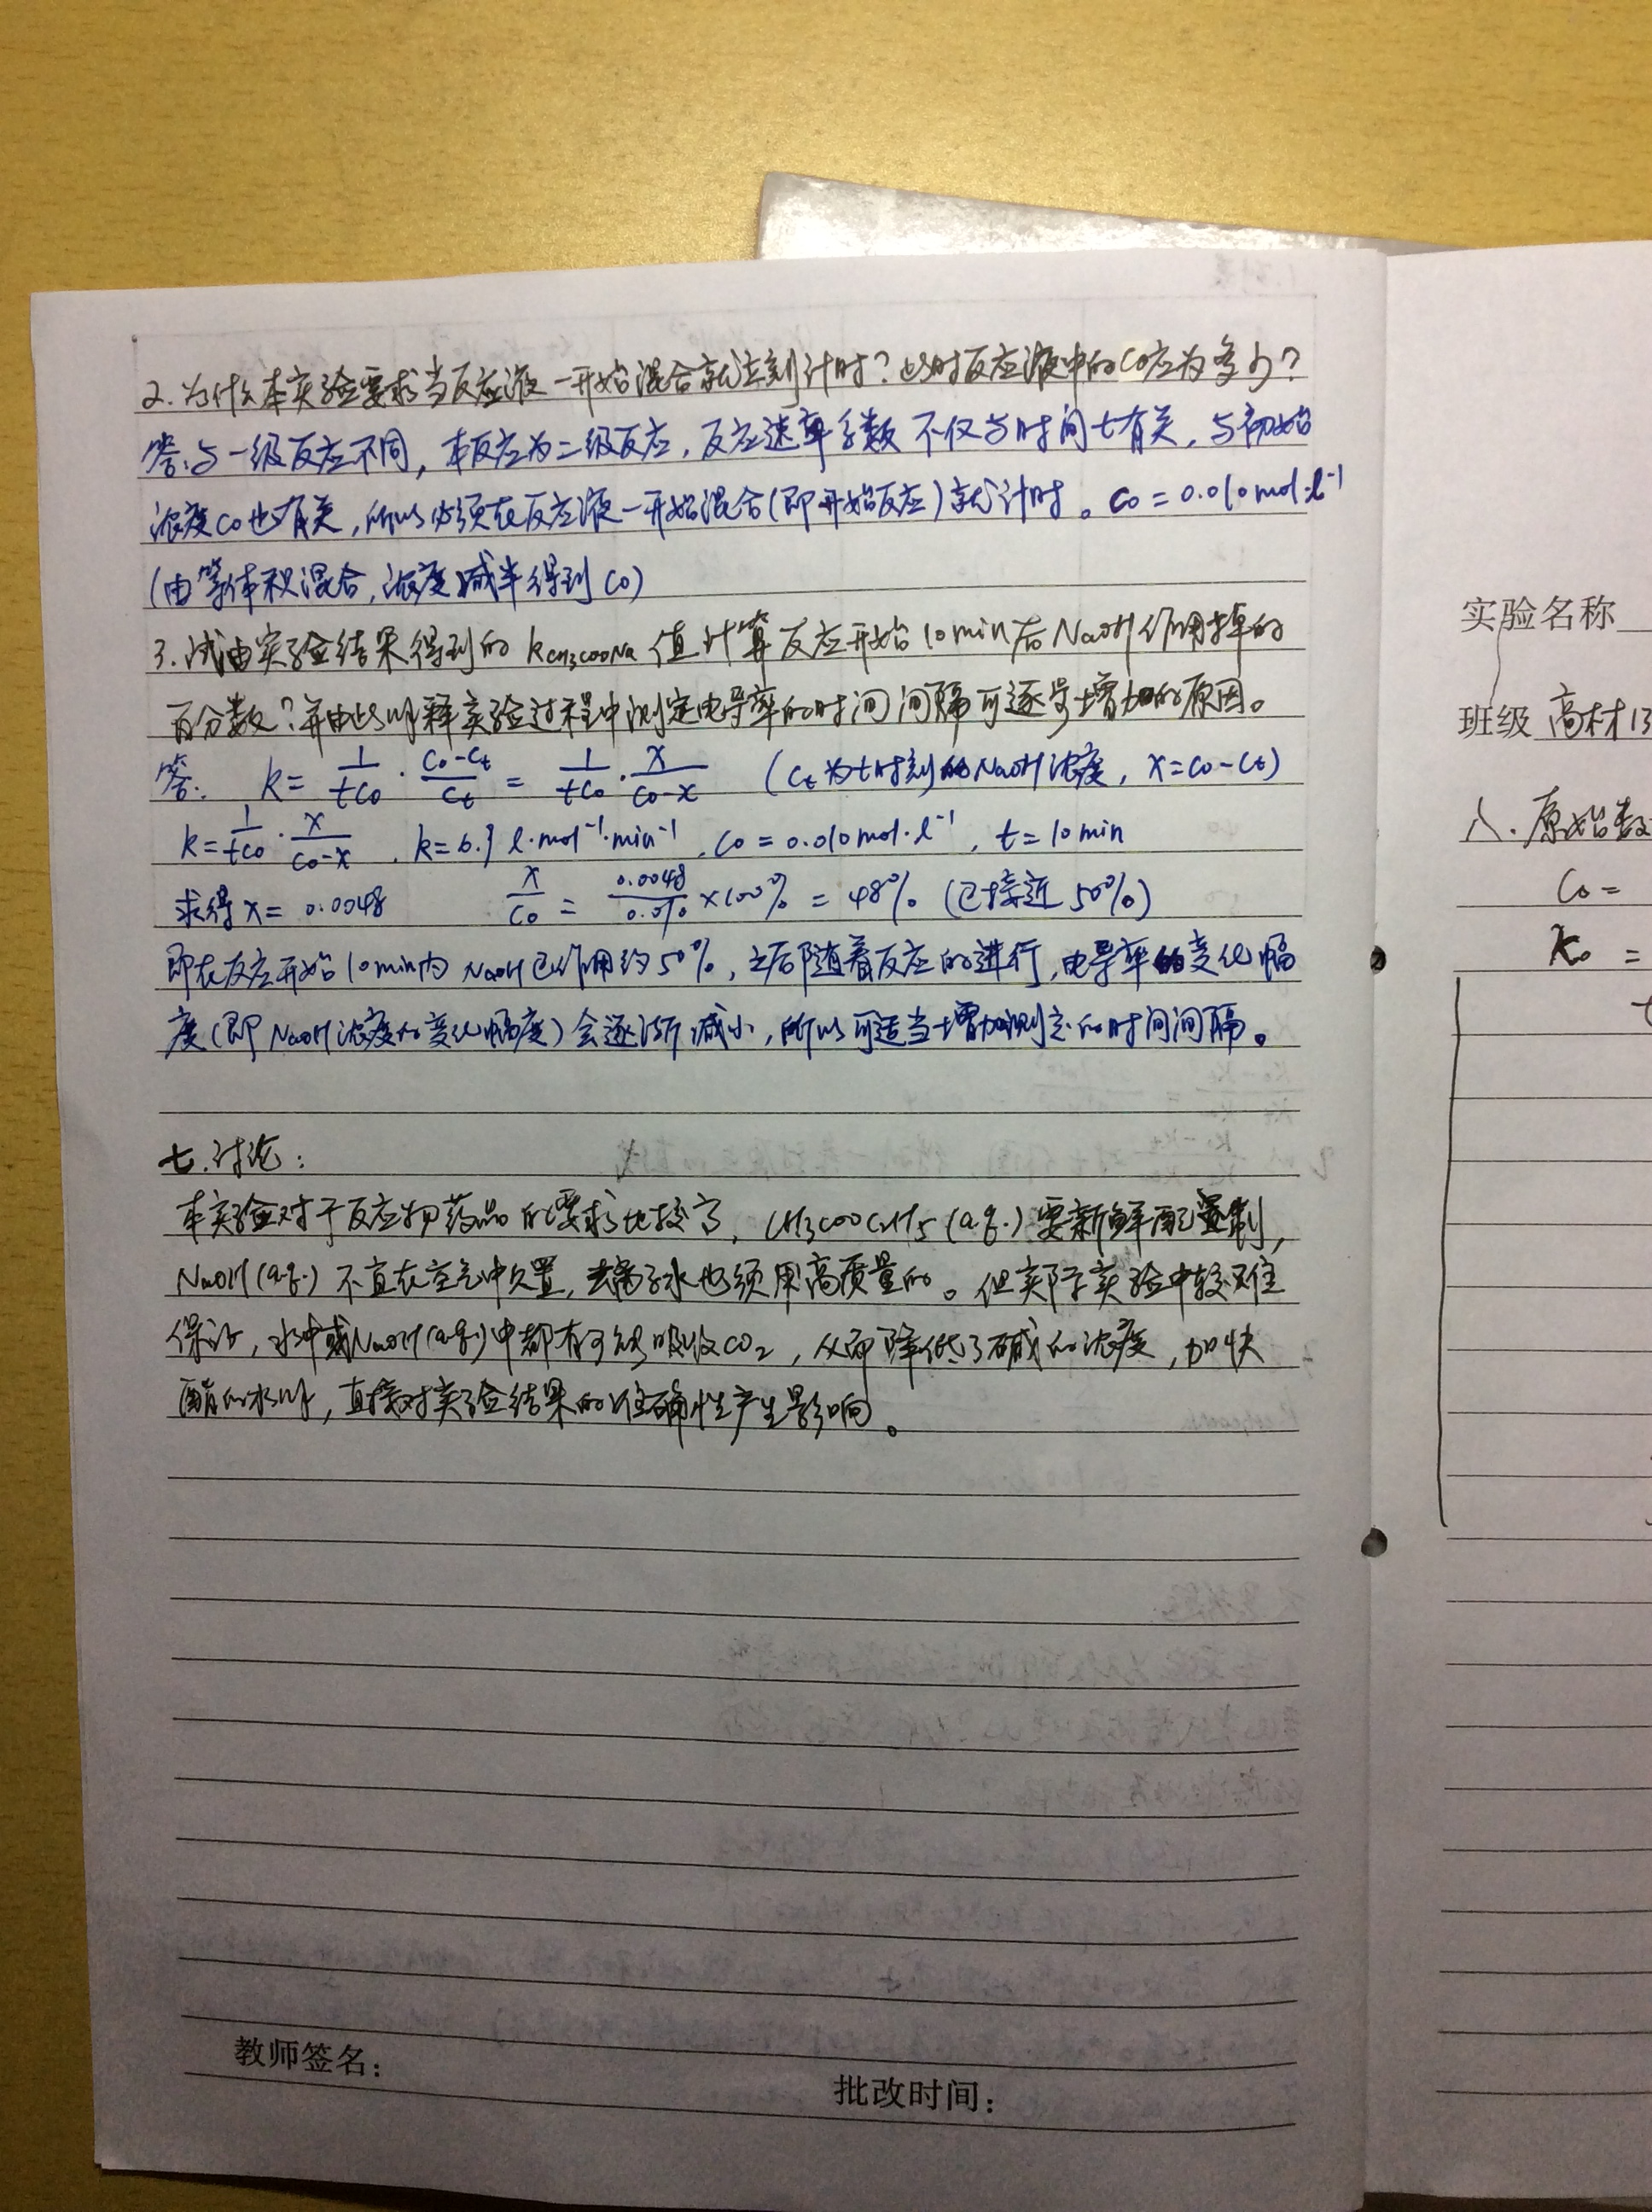 2.为什么本实验要求当反应液一开始混合就立刻计时?此时反应液中的C0应为多少?
答:与一级反应不同,本反应为二级反应,反应速率系数不仅与时间t有关,与初始
浓度C0也有关,所以必须在反应液一开始混合(即开始反应)就计时。C0=0.010mol·l⁻¹
(由等体积混合,浓度减半得到C0)
3.试由实验结果得到的kCH3COONa值计算反应开始10min后NaOH作用掉的
百分数?并由此解释实验过程中测定电导率的时间间隔可逐步增加的原因。
答: k= 1/tC0 · C0-Ct/Ct = 1/tC0 · x/C0-x (Ct为t时刻的NaOH浓度,x=C0-Ct)
k=1/tC0 · x/C0-x , k=6.9 l·mol⁻¹·min⁻¹, C0=0.010mol·l⁻¹, t=10min
求得x=0.0048 x/C0 = 0.0048/0.010 ×100% = 48% (已接近50%)
即在反应开始10min内NaOH已作用约50%,之后随着反应的进行,电导率的变化幅
度(即NaOH浓度的变化幅度)会逐渐减小,所以可适当增加测定的时间间隔。
七.讨论:
本实验对于反应物药品的要求比较高,CH3COOC2H5(a.q.)要新鲜配制,
NaOH(a.q.)不宜在空气中久置,去离子水也须用高质量的。但实际实验中较难
保证,水中或NaOH(a.q.)中都有可能吸收CO2,从而降低了碱的浓度,加快
酯的水解,直接对实验结果的准确性产生影响。
教师签名:
批改时间:
实验名称
班级 高材13
八.原始数
C0=
K0=
t